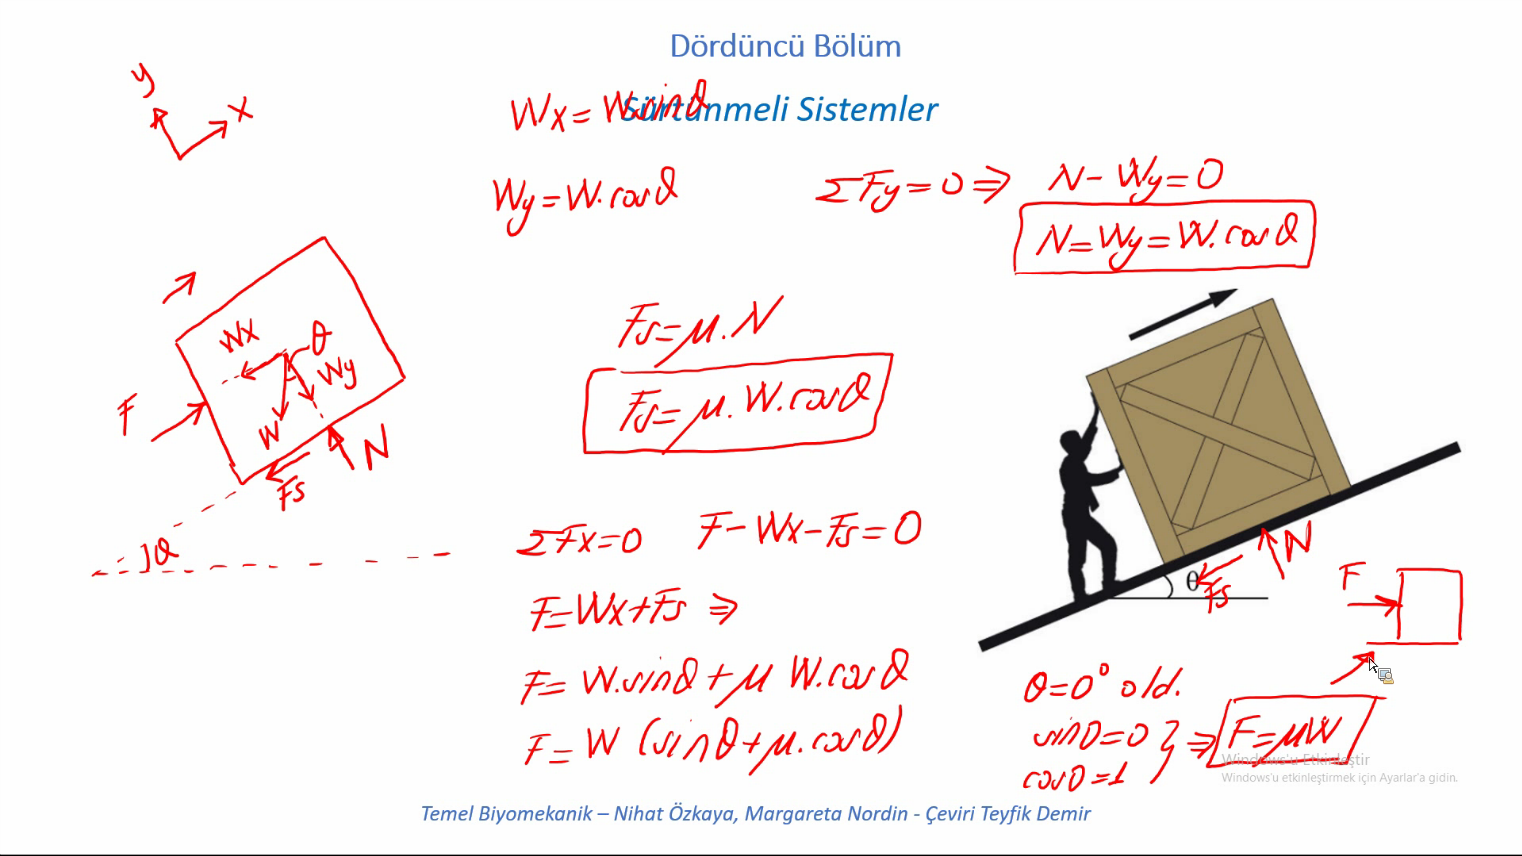 Dördüncü Bölüm
Sürtünmeli Sistemler
y
x
Wx = W.sinθ
Wy = W.cosθ
ΣFy = 0 ⇒ N - Wy = 0
N = Wy = W.cosθ
Fs = μ.N
Fs = μ.W.cosθ
Wx
θ
Wy
W
F
N
Fs
θ
ΣFx = 0 F - Wx - Fs = 0
F = Wx + Fs ⇒
F = W.sinθ + μ W.cosθ
F = W (sinθ + μ.cosθ)
N
θ
Fs
F
θ = 0° old.
sin0 = 0 } ⇒ F = μW
cos0 = 1
Windows'u Etkinleştir
Windows'u etkinleştirmek için Ayarlar'a gidin.
Temel Biyomekanik – Nihat Özkaya, Margareta Nordin - Çeviri Teyfik Demir